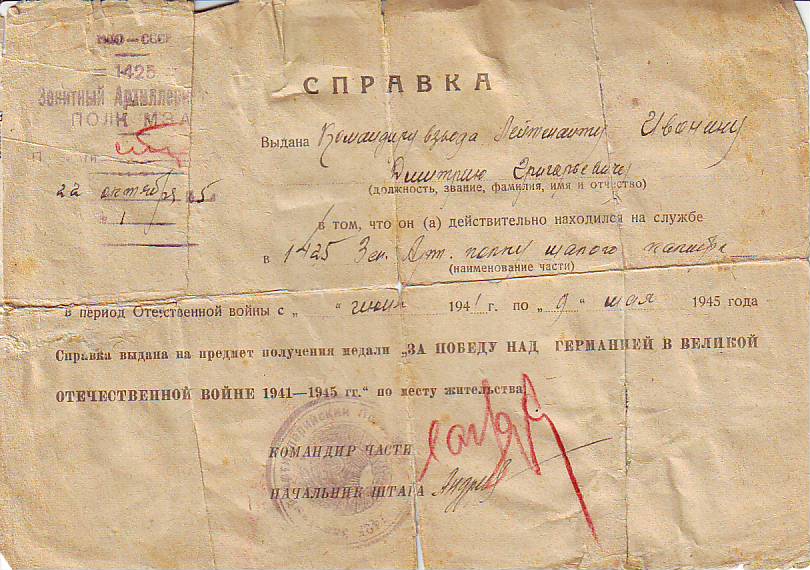 СССР
1425
Зенитный Артиллерий
ПОЛК МЗА
22 октября 5
1
СПРАВКА
Выдана Командиру взвода Лейтенанту Ивонину
Дмитрию Григорьевичу
(должность, звание, фамилия, имя и отчество)
в том, что он (а) действительно находился на службе
в 1425 Зен. Арт. полку малого калибра
(наименование части)
в период Отечественной войны с „ “ июля 1941 г. по „ 9 “ мая 1945 года
Справка выдана на предмет получения медали „ЗА ПОБЕДУ НАД ГЕРМАНИЕЙ В ВЕЛИКОЙ
ОТЕЧЕСТВЕННОЙ ВОЙНЕ 1941—1945 гг.“ по месту жительства
КОМАНДИР ЧАСТИ
НАЧАЛЬНИК ШТАБА